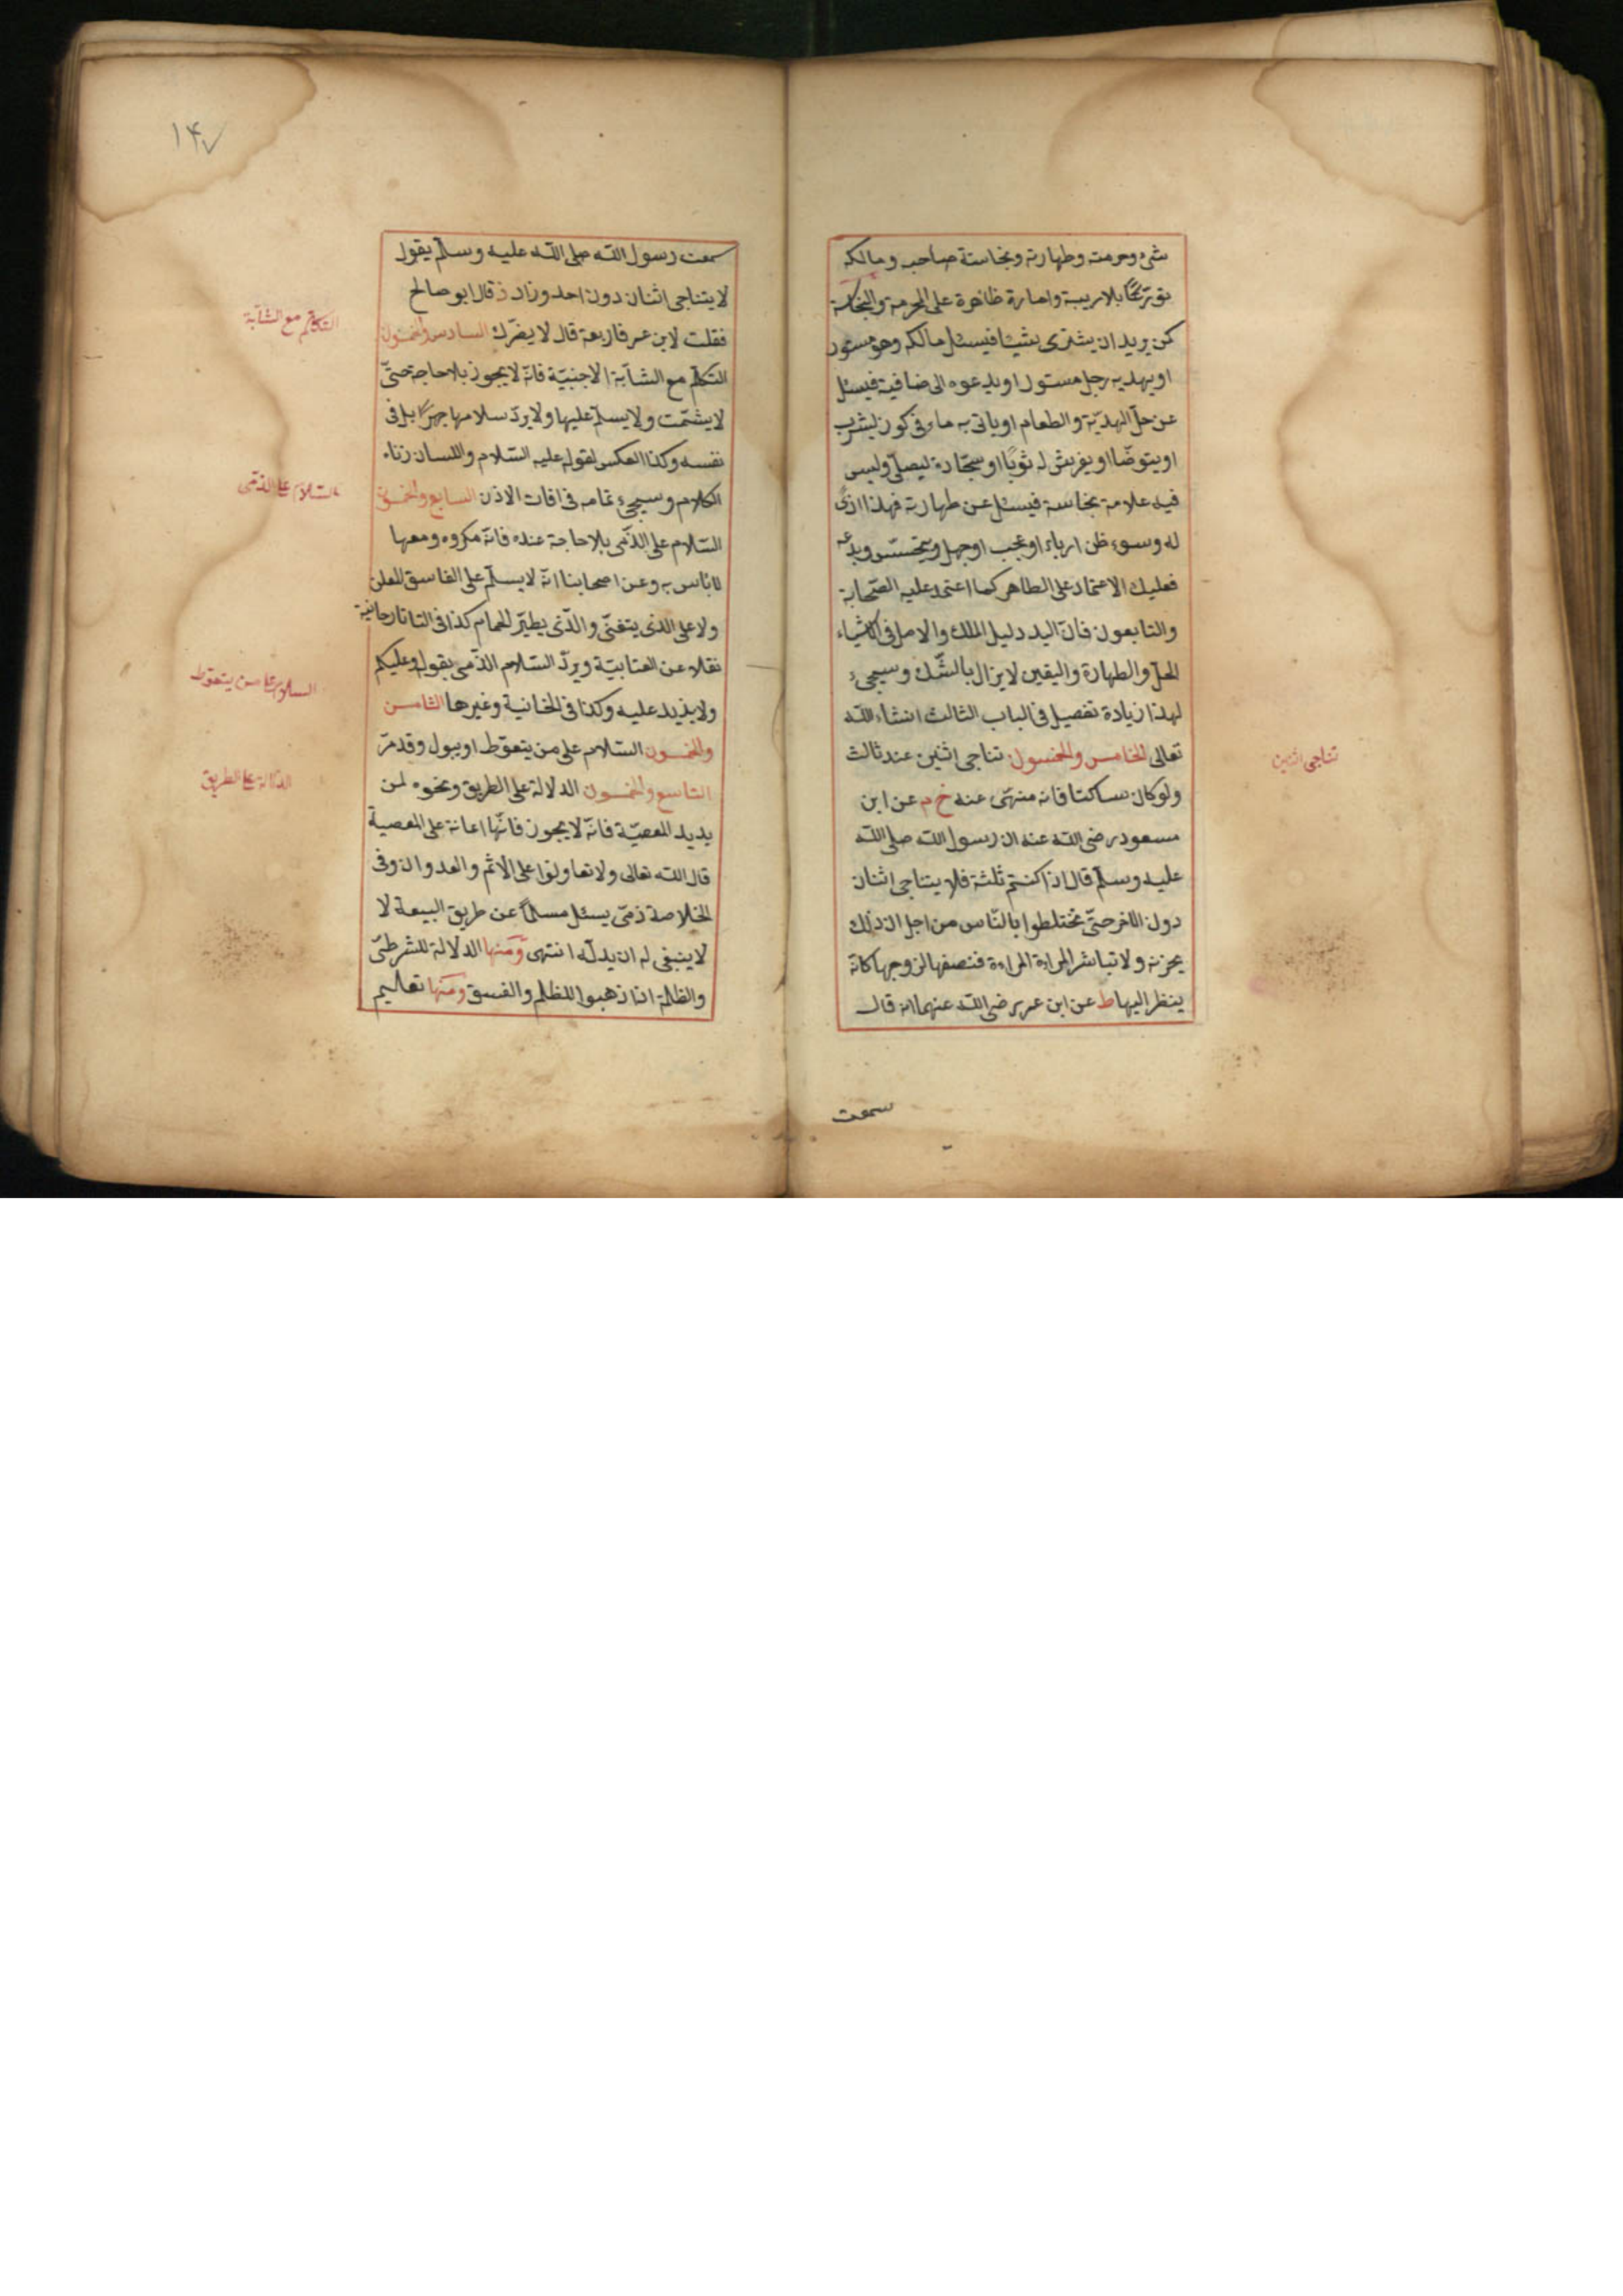 شئ وحرمته وطهارته ونجاسته صاحبه ومالكه
تورّعًا بلا ريبة وامارة ظاهرة على الحرمة والنجاسة
كمن يريد ان يشترى شيئا فيسئل مالكه وهو مستور
او يهديه رجل مستور او يدعوه الى ضيافة فيسئل
عن حلّ الهديّة والطعام او ياتى به ماء فى كوز ليشرب
او يتوضّا او يفرش له ثوبًا او سجّادة ليصلّى وليس
فيه علامة نجاسة فيسئل عن طهارته فهذا اذىً
له وسوء ظن او رياء او عجب او جهل وتجسّس وبدعه
فعليك الاعتماد على الظاهر كما اعتمد عليه الصّحابة
والتابعون فانّ اليد دليل الملك والاصل فى الاشياء
الحلّ والطهارة واليقين لا يزال بالشّك وسيجىء
لهذا زيادة تفصيل فى الباب الثالث انشاء الله
تعالى الخامس والخمسون تناجى اثنين عند ثالث
ولو كان ساكتا فانه منهىّ عنه خ م عن ابن
مسعود رضى الله عنه ان رسول الله صلى الله
عليه وسلّم قال اذا كنتم ثلثة فلا يتناجى اثنان
دون الاخر حتّى تختلطوا بالنّاس من اجل ان ذلك
يحزنه ولا تباشر المراءة المراءة فتصفها لزوجها كانّه
ينظر اليها ط عن ابن عمر رضى الله عنهما انه قال
سمعت
تناجى اثنين
١٤٧
سمعت رسول الله صلى الله عليه وسلّم يقول
لا يتناجى اثنان دون احد وزاد د قال ابو صالح
فقلت لابن عمر فاربعة قال لا يضرّك السادس والخمسون
التكلّم مع الشابّة الاجنبيّة فانّه لا يجوز بلا حاجة حتّى
لا يشمّت ولا يسلّم عليها ولا يردّ سلامها جهرًا بل فى
نفسه وكذا العكس لقوله عليه السّلام واللسان زناه
الكلام وسيجىء تمامه فى افات الاذن السابع والخمسون
السّلام على الذّمى بلا حاجة عنده فانّه مكروه ومعها
لا باس به وعن اصحابنا انّه لا يسلّم على الفاسق المعلن
ولا على الذى يتغنّى والّذى يطيّر الحمام كذا فى التاتارخانية
نقلا عن العتابيّة ويردّ السّلام الذّمى بقوله وعليكم
ولا يزيد عليه وكذا فى الخانية وغيرها الثامن
والخمسون السّلام على من يتغوّط او يبول وقد مرّ
التاسع والخمسون الدلالة على الطريق ونحوه لمن
يريد المعصيّة فانّه لا يجوز فانّها اعانة على المعصية
قال الله تعالى ولا تعاونوا على الاثم والعدوان وفى
الخلاصة ذمّى يسئل مسلمًا عن طريق البيعة لا
لا ينبغى له ان يدلّه انتهى ومنها الدلالة للشرطىّ
والظلمة اذا ذهبوا للظلم والفسق ومنها تعليم
التكلّم مع الشابّة
السّلام على الذمّى
السلام على من يتغوط
الدلالة على الطريق